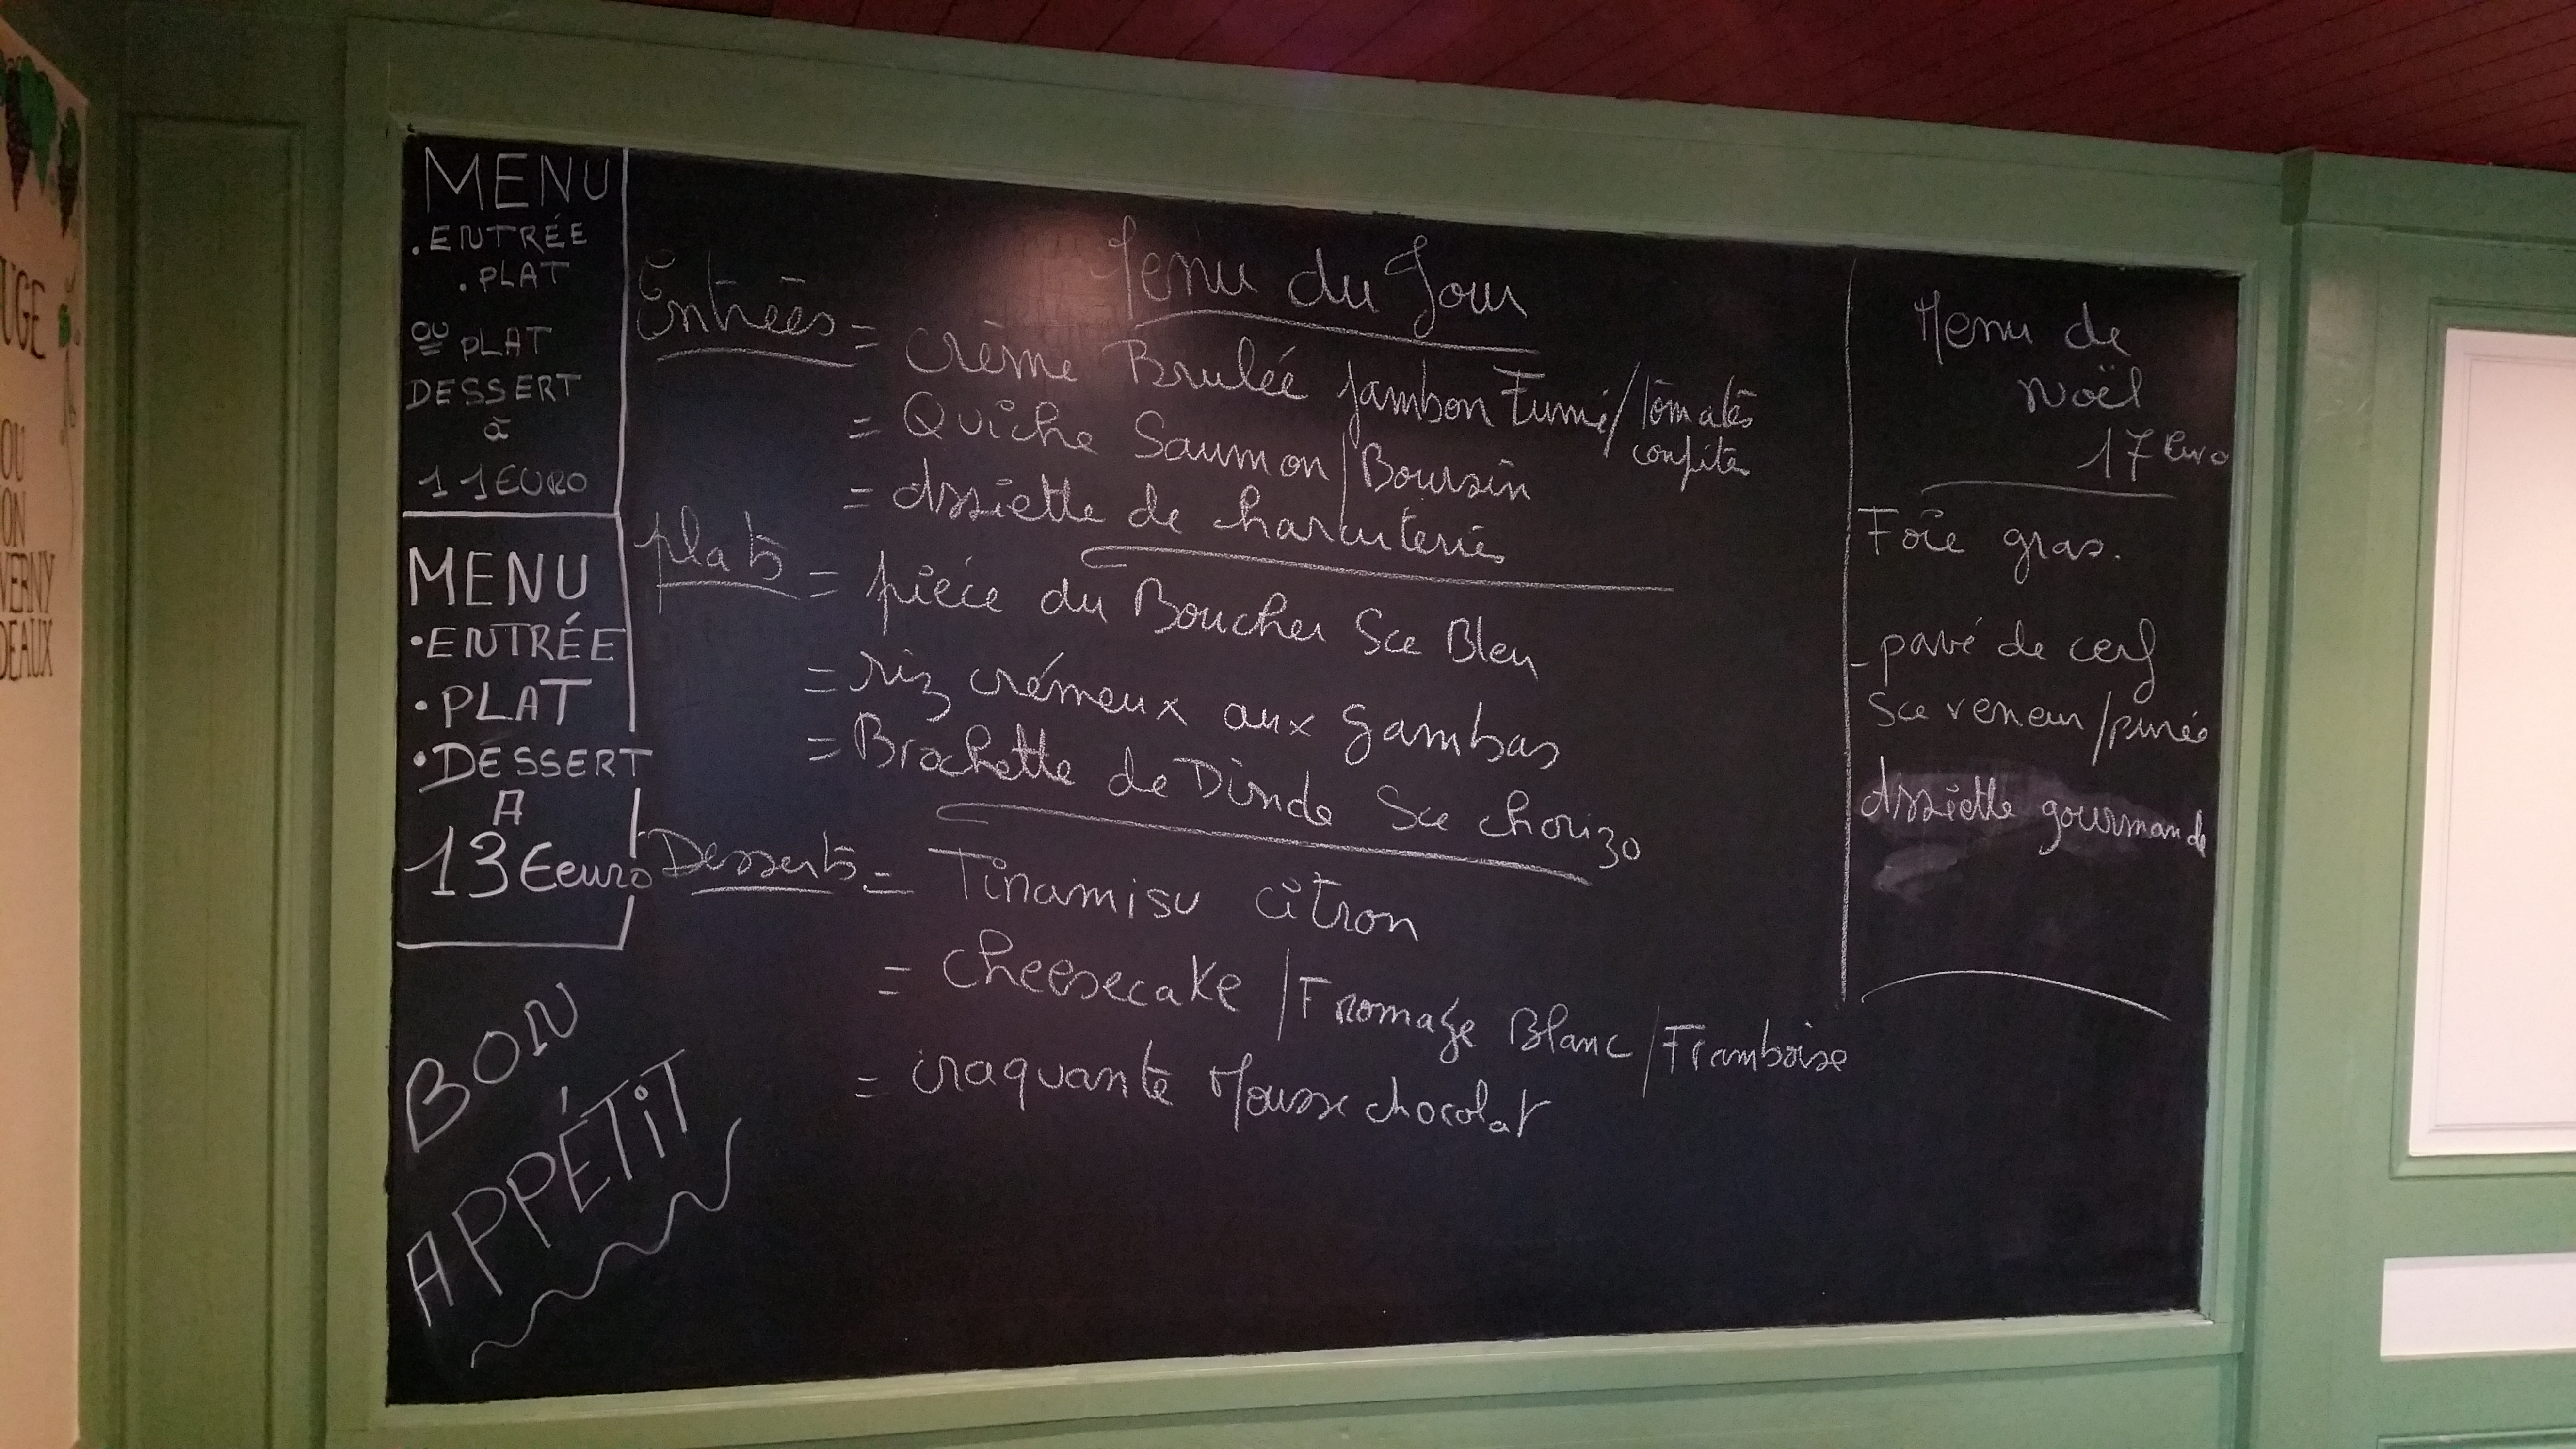 UGE
OU
ON
VERNY
DEAUX
MENU
.ENTRÉE
.PLAT
OU PLAT
DESSERT
à
11EURO
MENU
•ENTRÉE
•PLAT
•DESSERT
A
13€euro
BON
APPÉTIT
Menu du Jour
Entrées = crème Brulée jambon Fumé/tomates
confites
= Quiche Saumon/Boursin
= Assiette de charcuteries
plats = piéce du Boucher Sce Bleu
= riz crémeux aux gambas
= Brochette de Dinde Sce chorizo
Desserts = Tiramisu citron
= cheesecake/Fromage Blanc/Framboise
= craquante Mousse chocolat
Menu de
Noël
17 Euro
Foie gras.
- pavé de cerf
Sce veneur/purée
Assiette gourmande